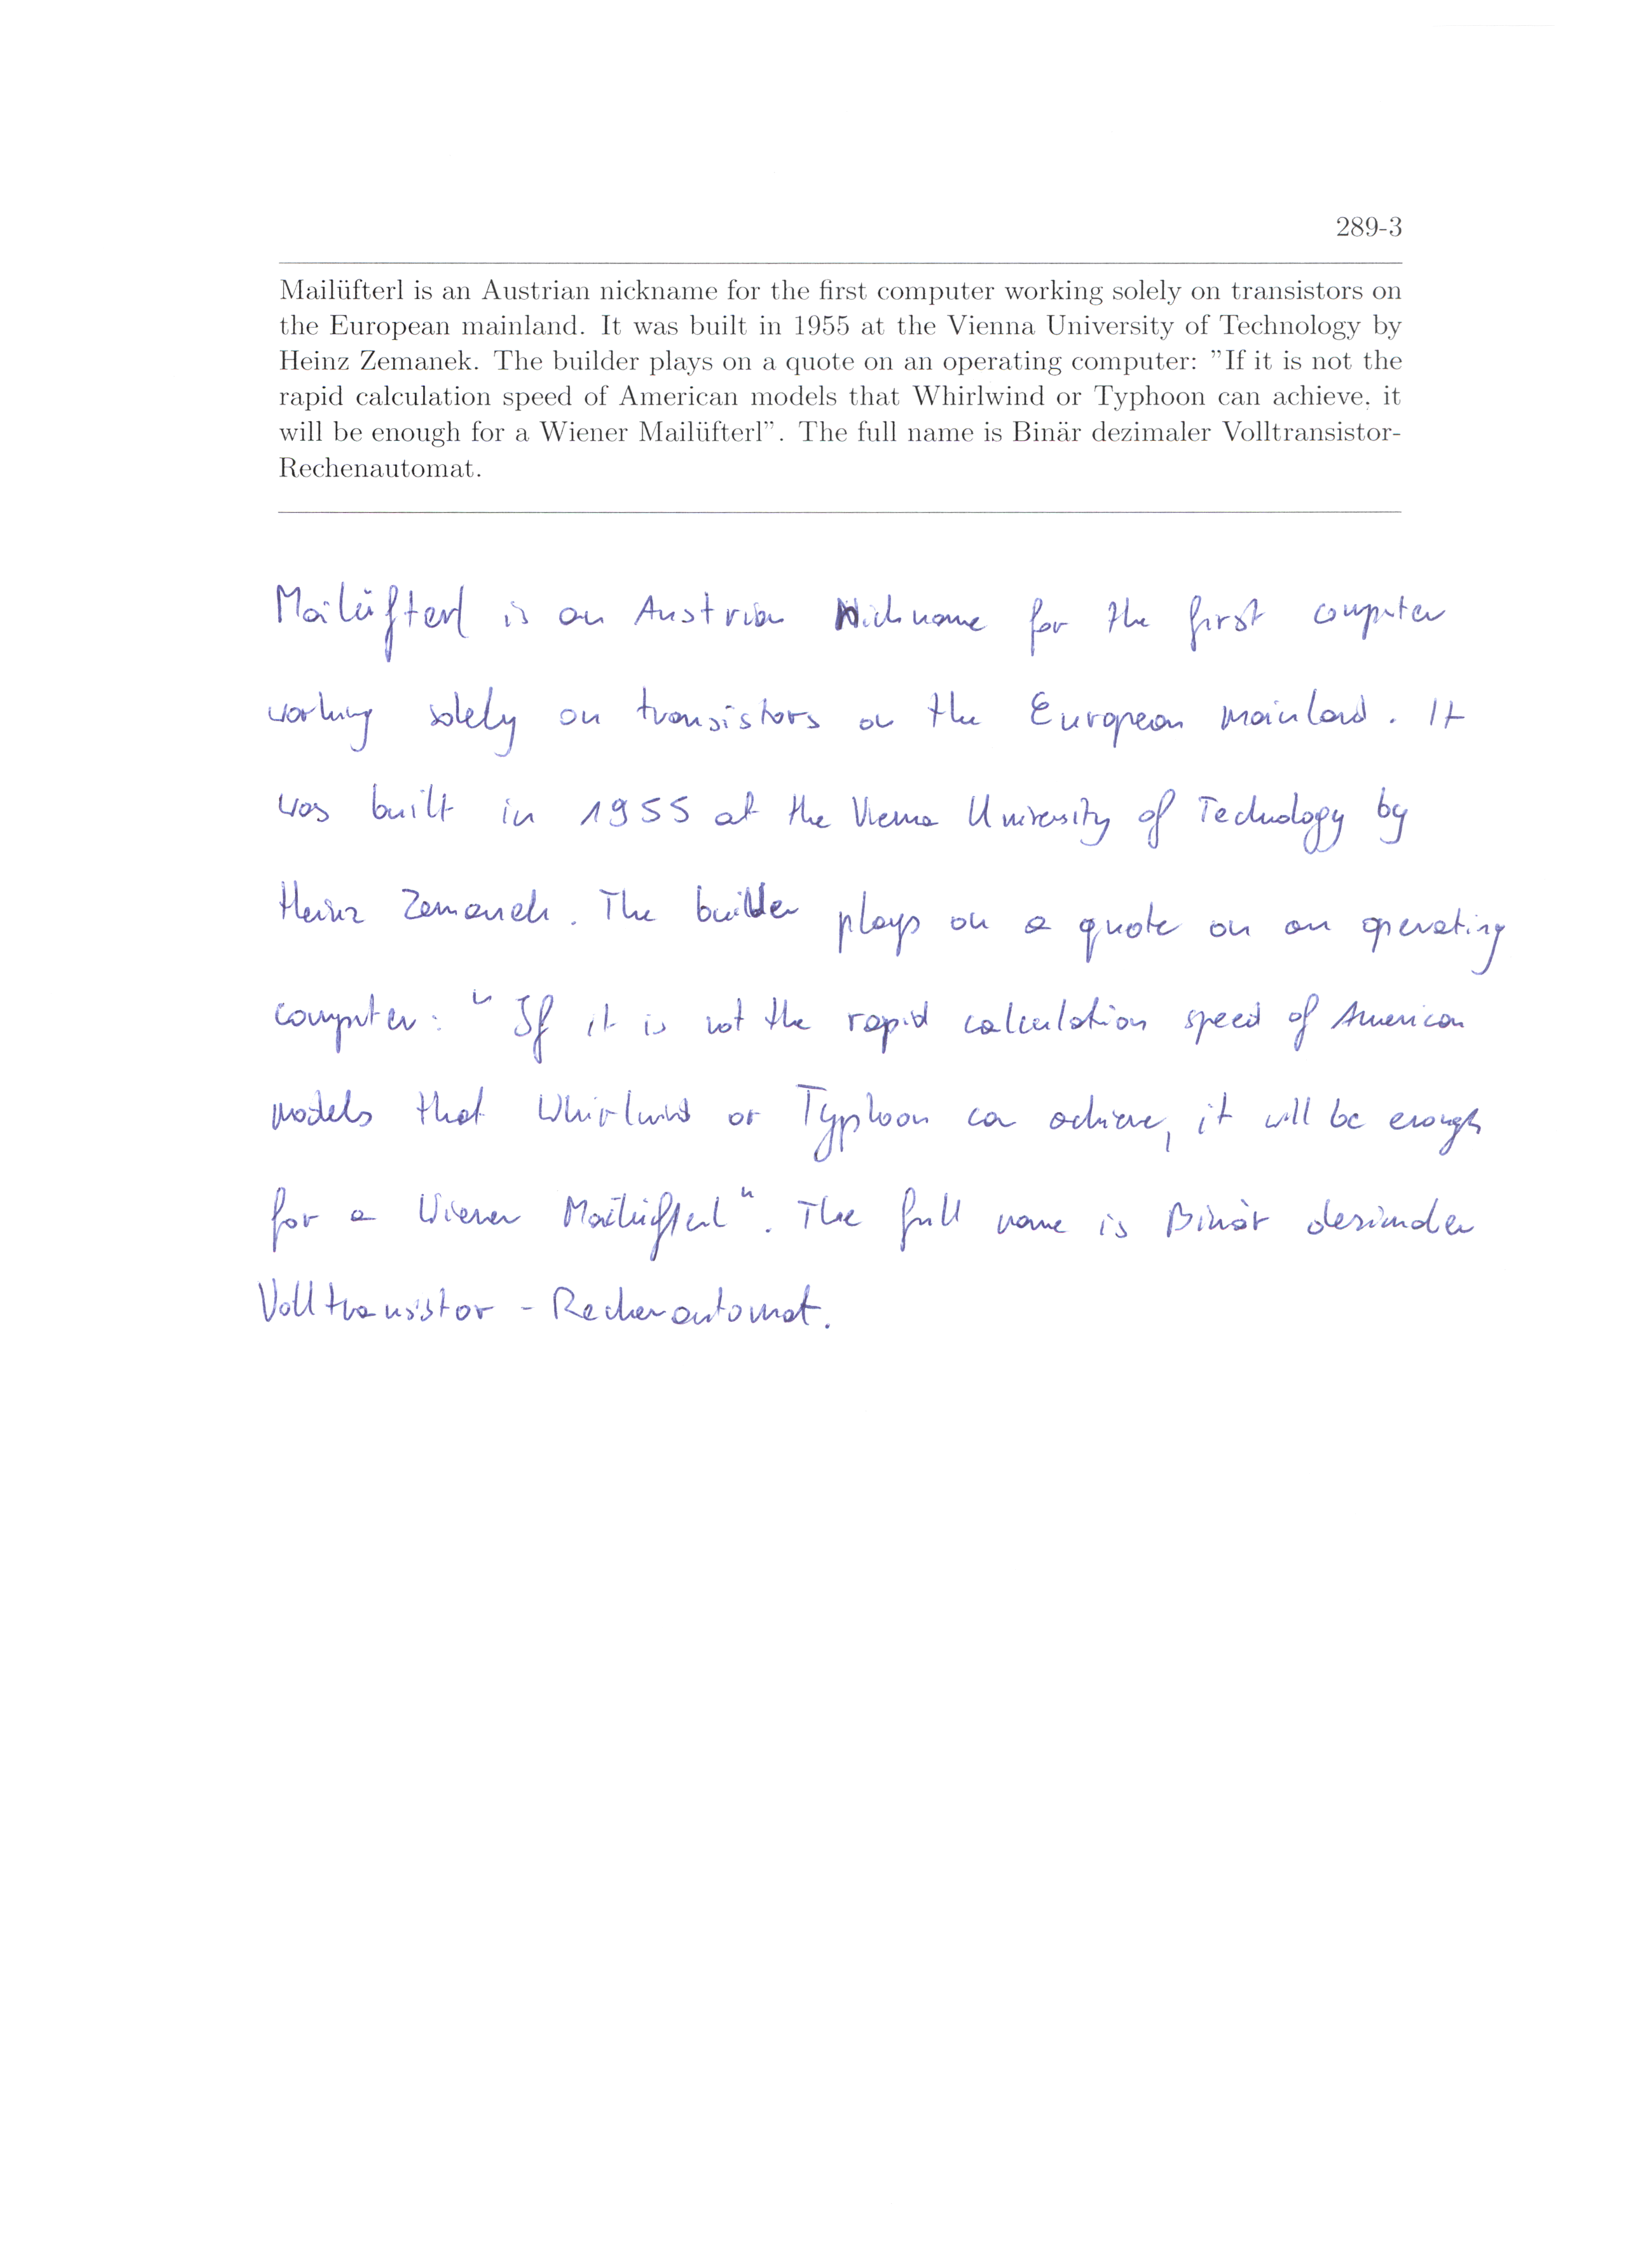 289-3
Mailüfterl is an Austrian nickname for the first computer working solely on transistors on
the European mainland. It was built in 1955 at the Vienna University of Technology by
Heinz Zemanek. The builder plays on a quote on an operating computer: ”If it is not the
rapid calculation speed of American models that Whirlwind or Typhoon can achieve, it
will be enough for a Wiener Mailüfterl”. The full name is Binär dezimaler Volltransistor-
Rechenautomat.
Mailüfterl is an Austrian Nickname for the first computer
working solely on transistors on the European mainland. It
was built in 1955 at the Vienna University of Technology by
Heinz Zemanek. The builder plays on a quote on an operating
computer: "If it is not the rapid calculation speed of American
models that Whirlwind or Typhoon can achieve, it will be enough
for a Wiener Mailüfterl". The full name is Binär dezimaler
Volltransistor - Rechenautomat.